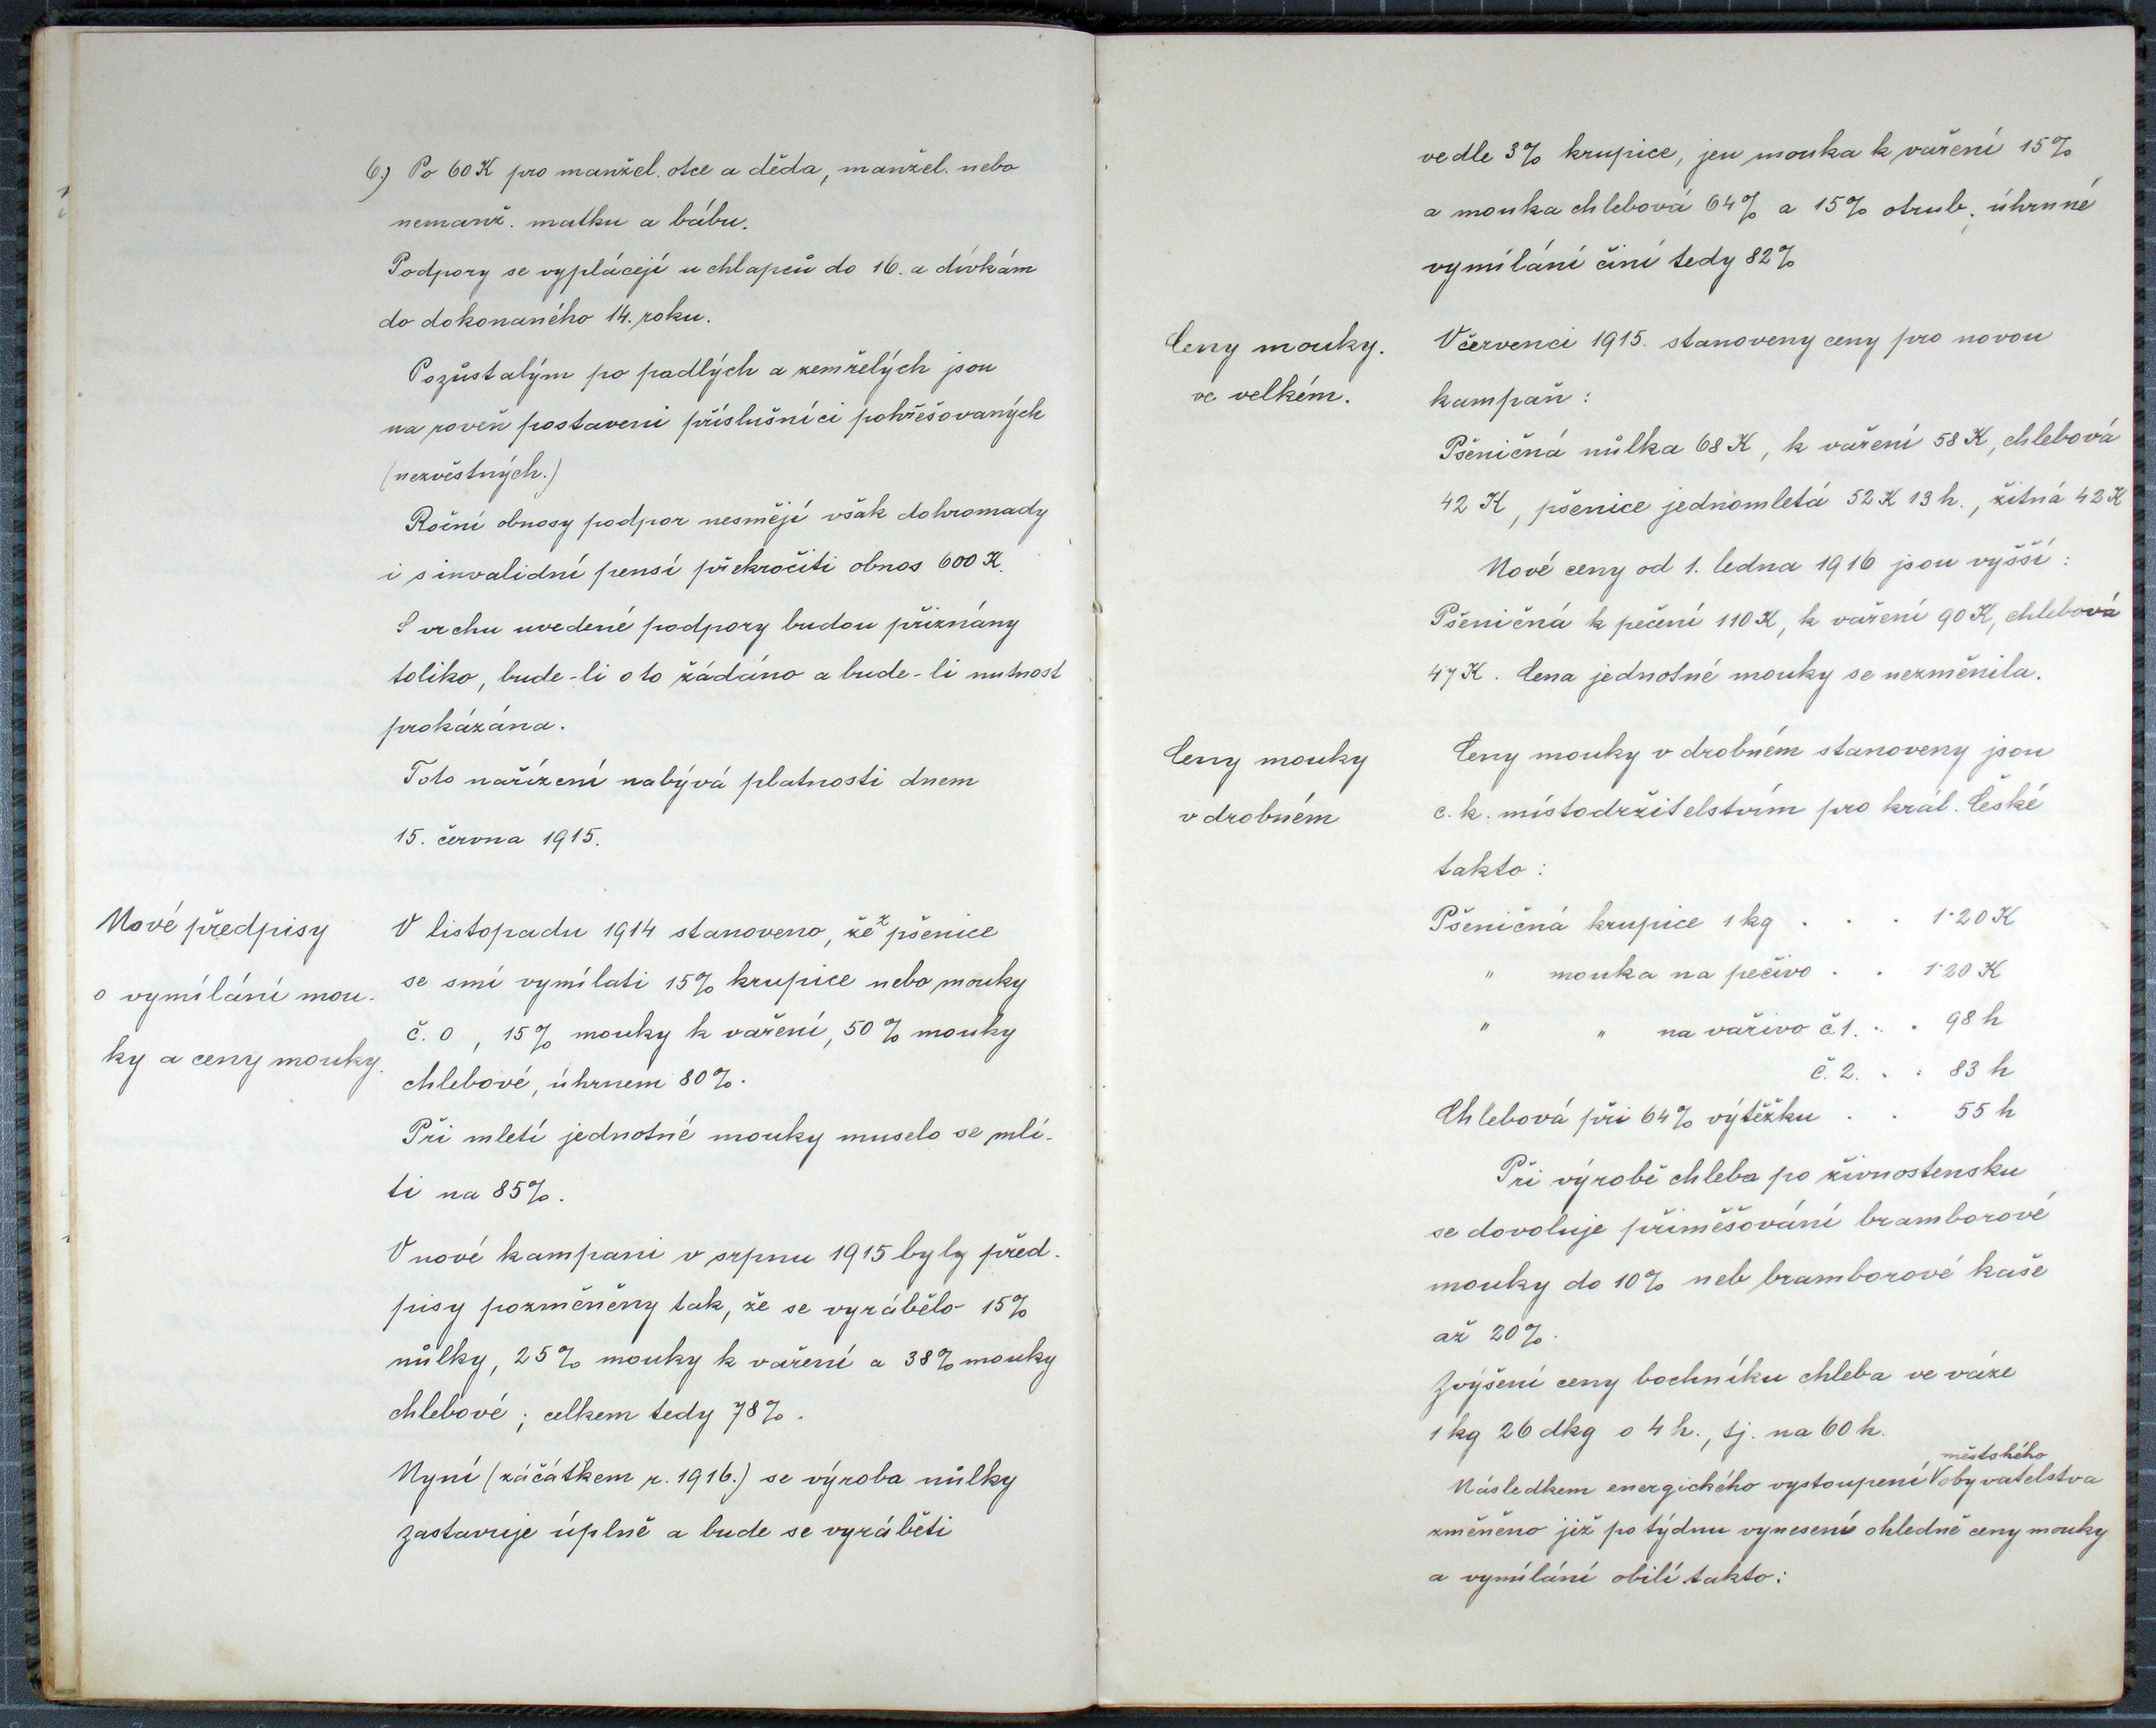 6.) Po 60 K pro manžel. otce a děda, manžel. nebo
nemanž. matku a bábu.
Podpory se vyplácejí u chlapců do 16. a dívkám
do dokonaného 14. roku.
Pozůstalým po padlých a zemřelých jsou
na roveň postaveni příslušníci pohřešovaných
(nezvěstných.)
Roční obnosy podpor nesmějí však dohromady
i s invalidní pensí překročiti obnos 600 K.
S vrchu uvedené podpory budou přiznány
toliko, bude-li o to žádáno a bude-li nutnost
prokázána.
Toto nařízení nabývá platnosti dnem
15. června 1915.
Nové předpisy
o vymílání mou-
ky a ceny mouky.
V listopadu 1914 stanoveno, že z pšenice
se smí vymílati 15% krupice nebo mouky
č. 0, 15% mouky k vaření, 50% mouky
chlebové, úhrnem 80%.
Při mletí jednotné mouky muselo se mlí-
ti na 85%.
V nové kampani v srpnu 1915 byly před-
pisy pozměněny tak, že se vyrábělo 15%
nůlky, 25% mouky k vaření a 38% mouky
chlebové; celkem tedy 78%.
Nyní (záčátkem r. 1916.) se výroba nůlky
zastavuje úplně a bude se vyráběti
vedle 3% krupice, jen mouka k vaření 15%
a mouka chlebová 64% a 15% otrub; úhrnné
vymílání činí tedy 82%
Ceny mouky.
ve velkém.
V červenci 1915. stanoveny ceny pro novou
kampaň:
Pšeničná nůlka 68 K, k vaření 58 K, chlebová
42 K, pšenice jednomletá 52 K 13 h., žitná 42 K
Nové ceny od 1. ledna 1916 jsou vyšší:
Pšeničná k pečení 110 K, k vaření 90 K, chlebová
47 K. Cena jednotné mouky se nezměnila.
Ceny mouky
v drobném
Ceny mouky v drobném stanoveny jsou
c. k. místodržitelstvím pro král. České
takto:
Pšeničná krupice 1 kg . . . 1·20 K
" mouka na pečivo . . 1·20 K
" " na vařivo č. 1. . . 98 h
č. 2. . . 83 h
Chlebová při 64% výtěžku . . 55 h
Při výrobě chleba po živnostensku
se dovoluje přiměšování bramborové
mouky do 10% neb bramborové kaše
až 20%.
Zvýšení ceny bochníku chleba ve váze
1 kg 26 dkg o 4 h., tj. na 60 h.
Následkem energického vystoupení městského obyvatelstva
změněno již po týdnu vynesení ohledně ceny mouky
a vymílání obilí takto: